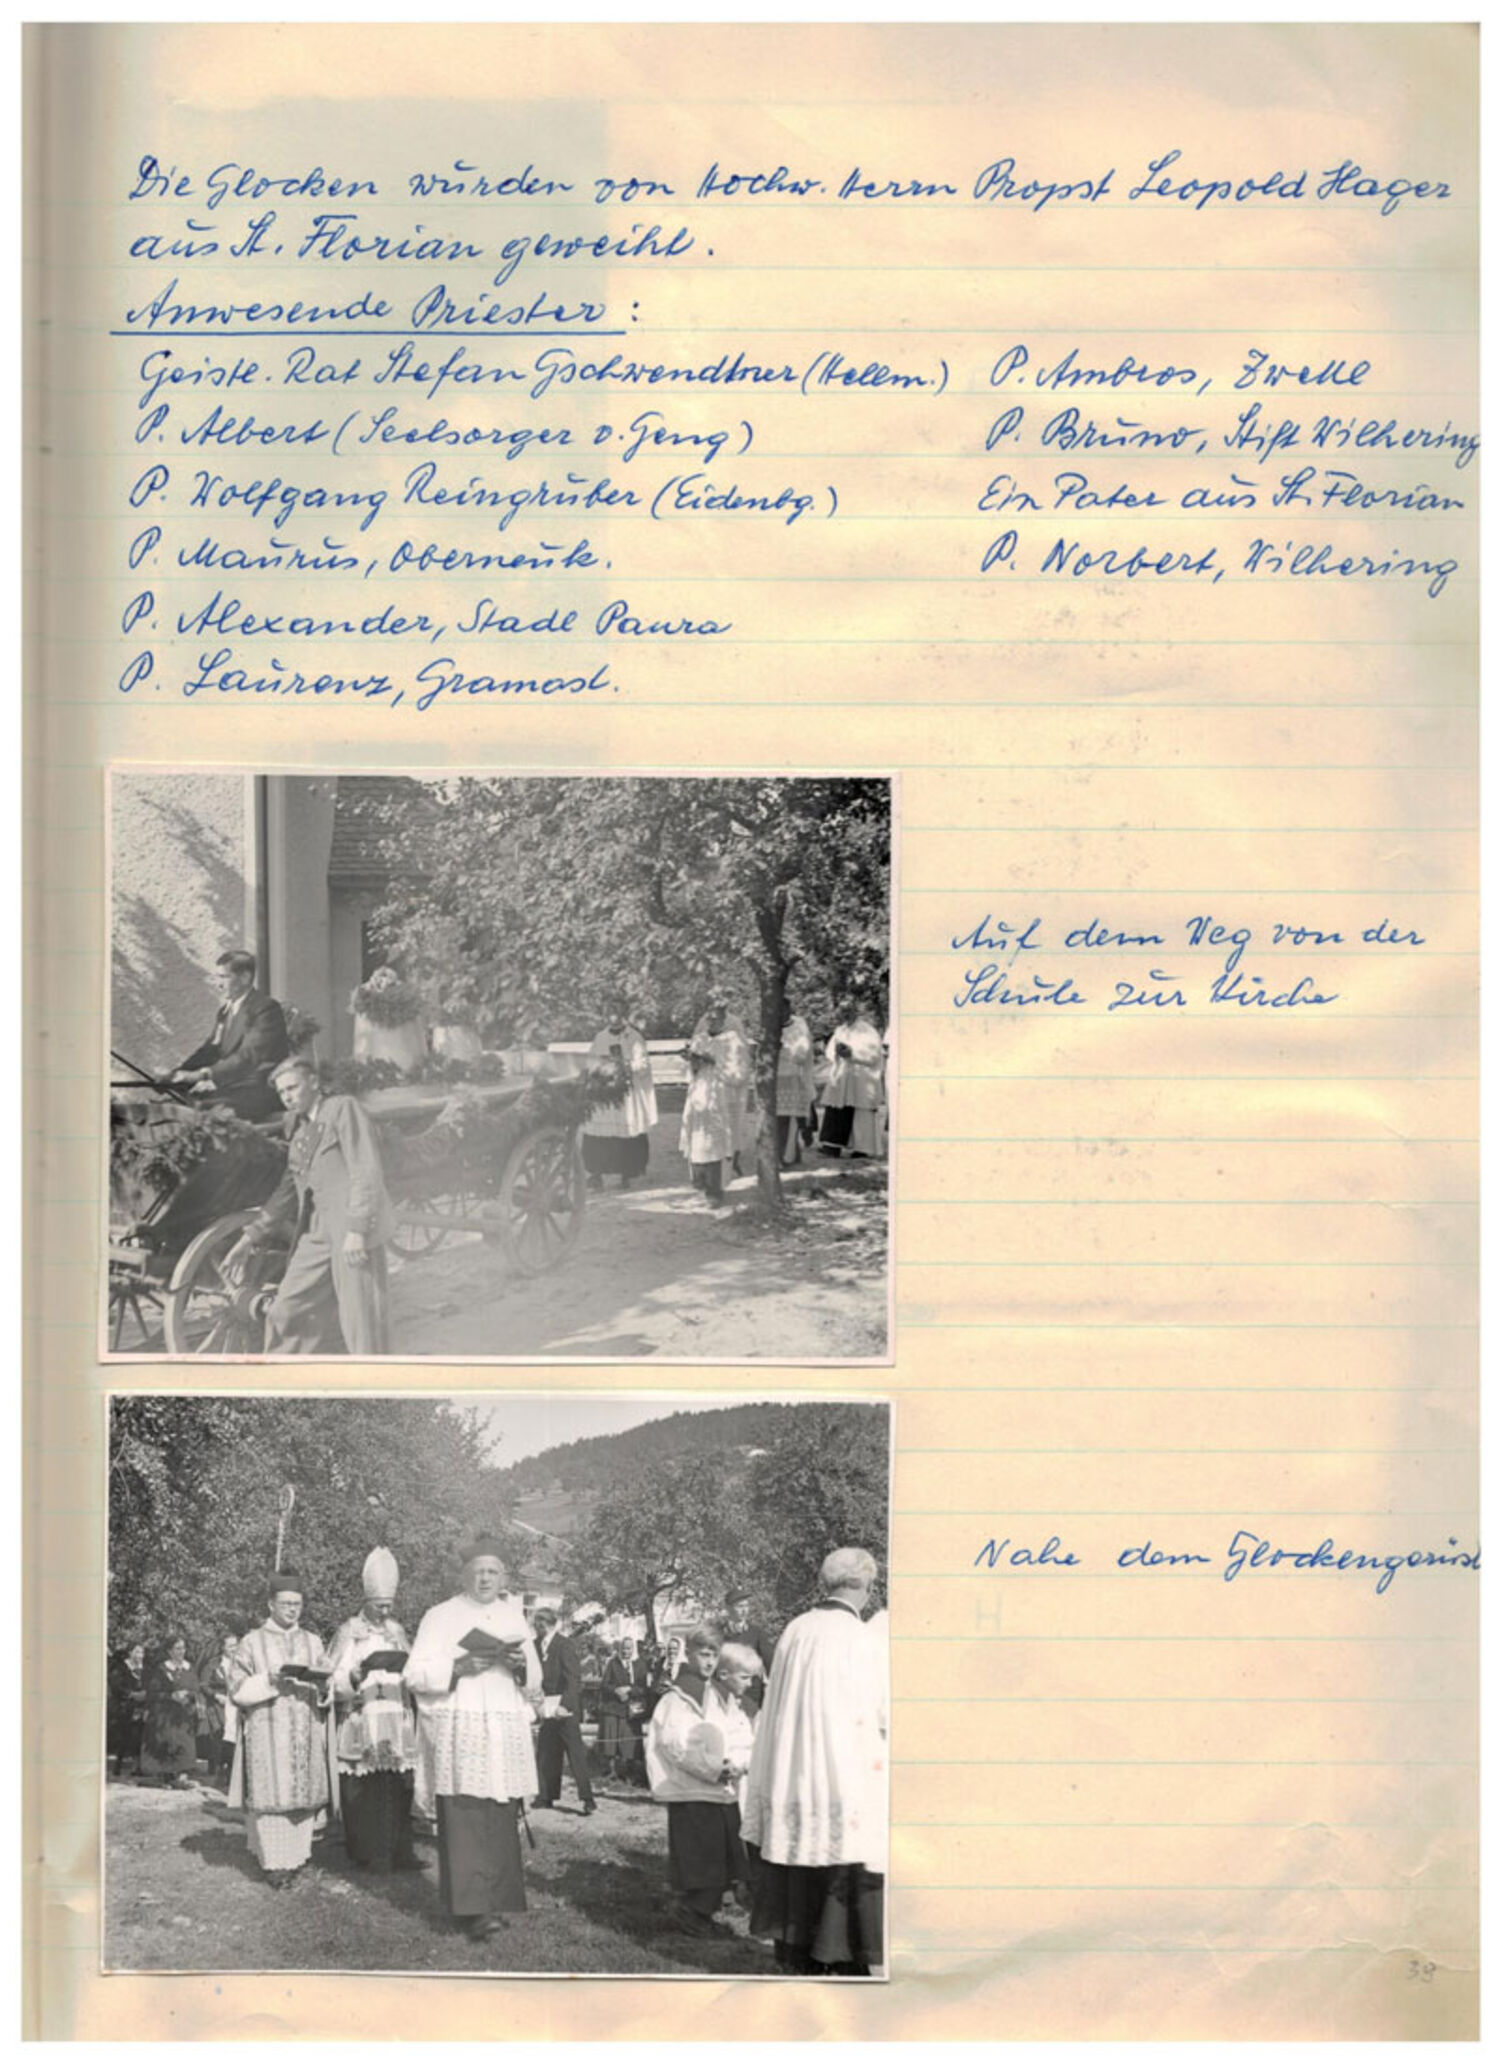 Die Glocken wurden von Hochw. Herrn Propst Leopold Hager
aus St. Florian geweiht.
Anwesende Priester:
Geistl. Rat Stefan Gschwendtner (Hellm.)
P. Albert (Seelsorger v. Geng)
P. Wolfgang Reingruber (Eidenbg.)
P. Maurus, Oberneuk.
P. Alexander, Stadl Paura
P. Laurenz, Gramast.
P. Ambros, Zwettl
P. Bruno, Stift Wilhering
Ein Pater aus St. Florian
P. Norbert, Wilhering
Auf dem Weg von der
Schule zur Kirche
Nahe dem Glockengerüst
39